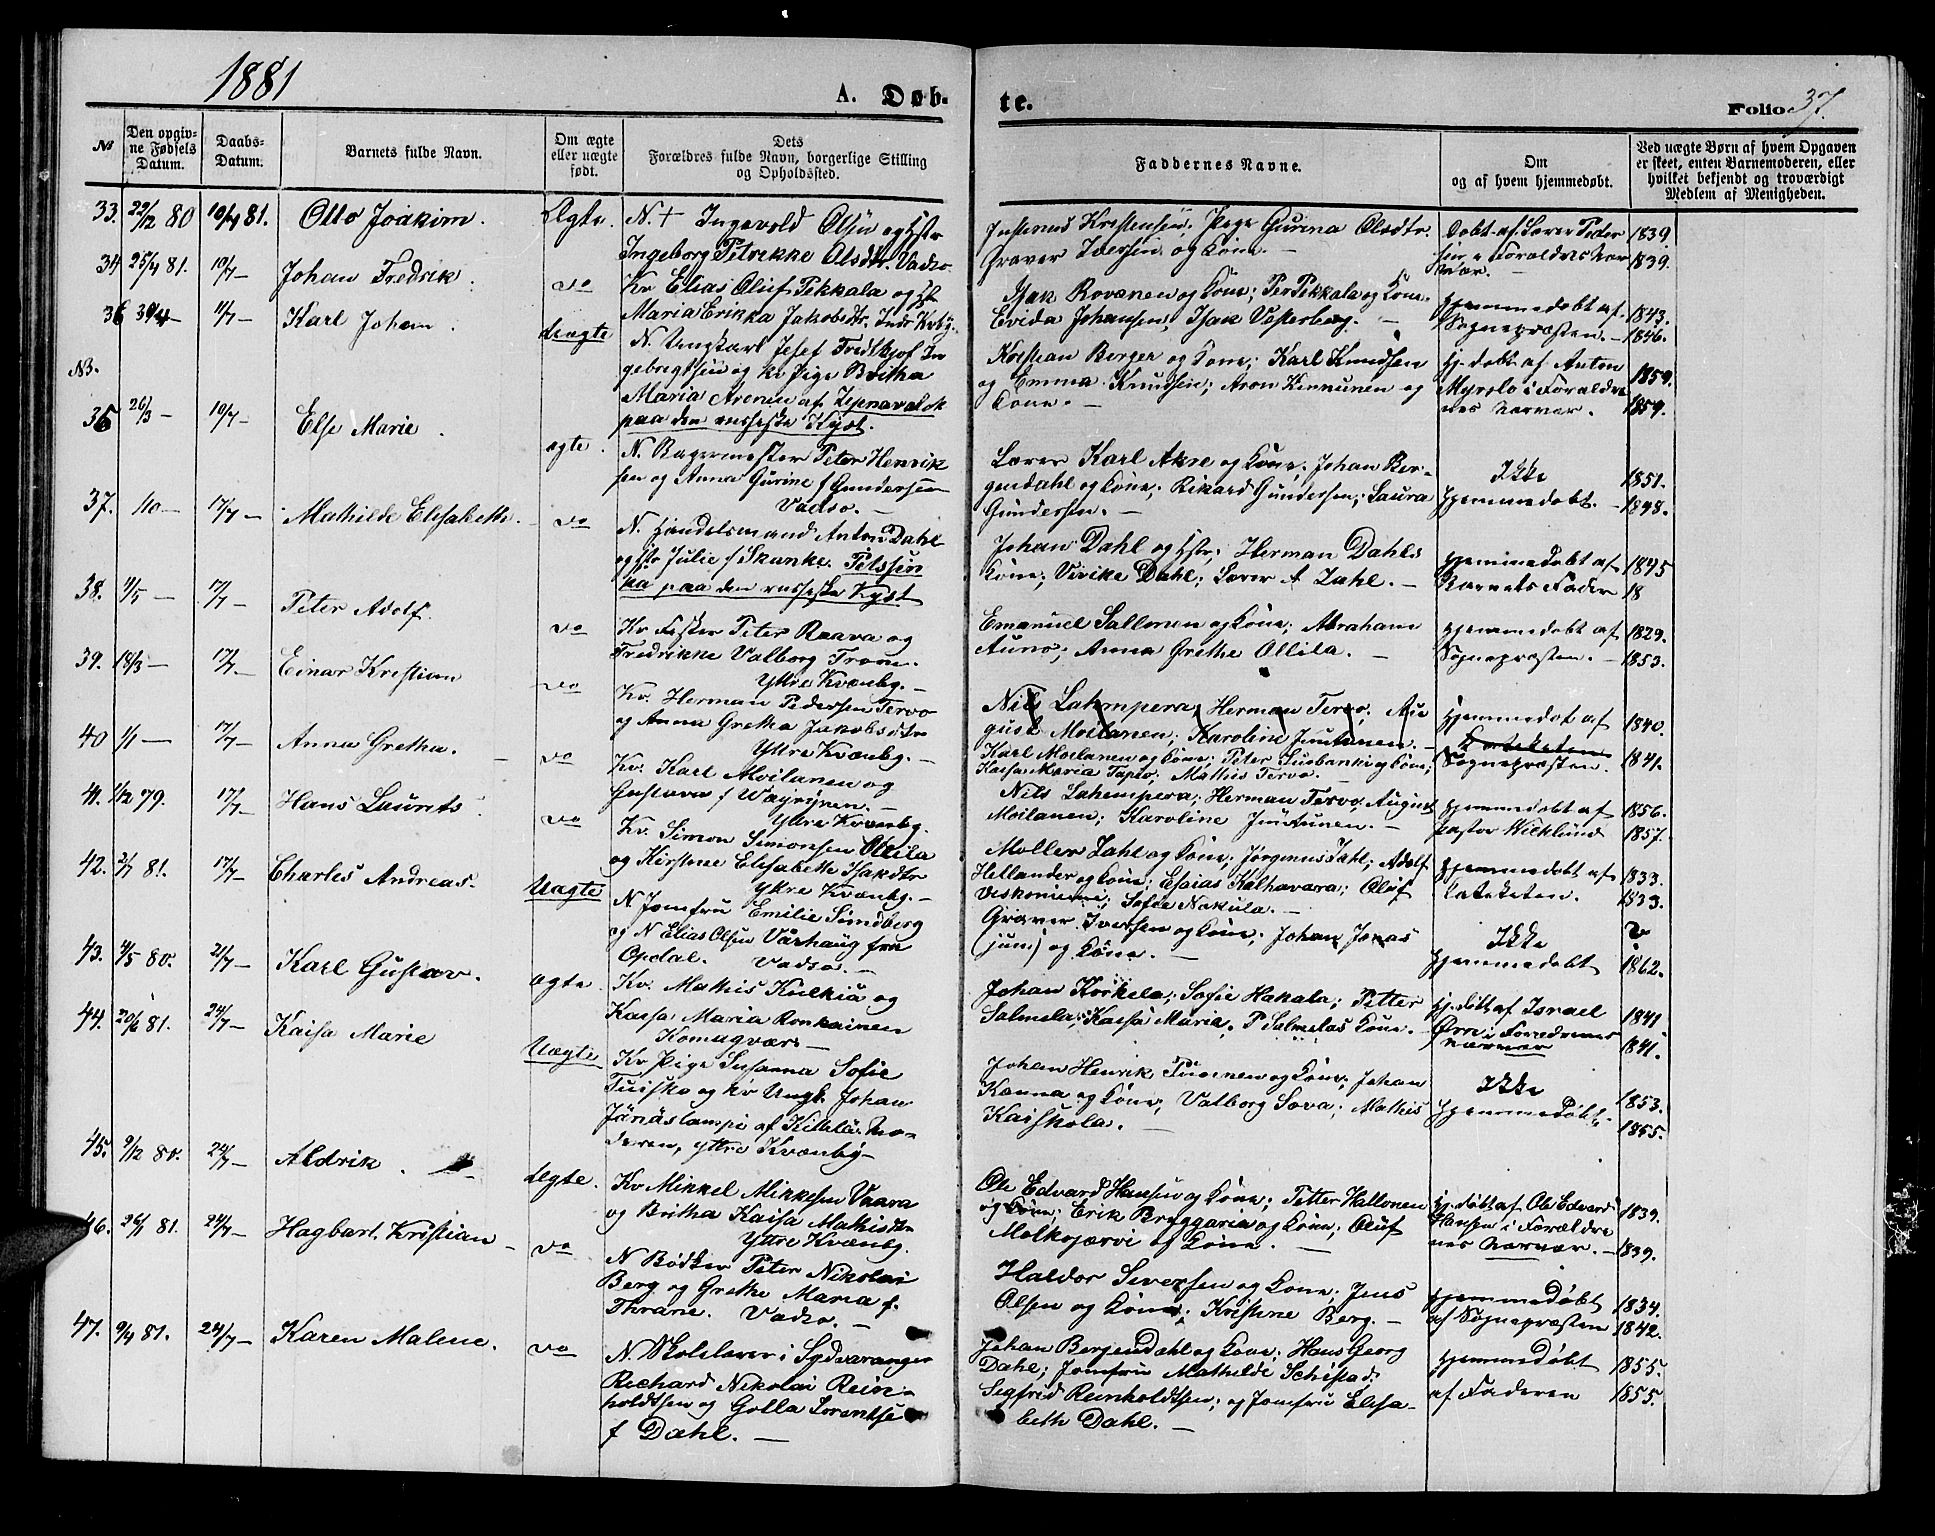 1881
A. Døb-
te.
Folio 37.
No
Den opgiv-
ne Fødsels
Datum.
Daabs-
Datum.
Barnets fulde Navn.
Om ægte
eller uægte
født.
Dets
Forældres fulde Navn, borgerlige Stilling
og Opholdssted.
Faddernes Navne.
Om
og af hvem hjemmedøbt.
Ved uægte Børn af hvem Opgaven
er skeet, enten Barnemoderen, eller
hvilket bekjendt og troværdigt
Medlem af Menigheden.
33. 29/12 80 10/7 81. Otto Joakim. Ægte.
N. + Ingevold Olsen og Hstr
Ingeborg Petrikke Olsdtr. Vadsø.
Justinus Kristensen, Pige Gurina Olsdtr.
Graver Iversen og Kone.
Døbt af Lærer Peder
1839.
1839.
34 25/4 81. 10/7 - Johan Fredrik. do
Kv Elias Oluf Pekkala og
Maria Erikka Jakobsdtr. Indr Kvby.
Isak Rovanen og Kone; Per Pekkala og Kone.
Evida Johansen; Isak Vesterberg. -
Hjemmedøbt af
Sognepræsten. -
1843.
1846.
36 30/4 - 11/7 - Karl Johan. Uægte
N. Ungkarl Josef Fredthjof In
gebregtsen og Kv Pige Britha
Maria Aronen af Zepnavalok
paa den russiske Kyst.
Kristian Berger og Kone; Karl Knudsen
og Emma Knudsen; Aron Kinnunen og
Kone. -
Hj. døbt af Anton
Myrslo i Forældre
nes Nærvær.
1859.
1859.
NB.
35 26/3 - 10/7 - Else Marie. ægte.
N. Bagermester Peter Henrik
sen og Anna Gurine f Gundersen
Vadsø. -
Lærer Karl Akre og Kone; Johan Ber-
gendahl og Kone; Rikard Gundersen; Laura
Gundersen. -
Ikke
hjemmedøbt. -
1851.
1848.
37. 17/7 - Mathilde Elisabeth. - do
N. Handelsmand Anton Dahl
og Hstr Julie f Skanke. Pelssin
ka paa den russiske Kyst
Johan Dahl og Hstr; Herman Dahls
Kone; Vivike Dahl; Lærer A Zahl. -
Hjemmedøbt af
Barnets Fader
1845
18
38. 11/5 - 17/7 - Peter Adolf. do
Kv Fisker Peter Raava og
Fredrikke Valborg Trone.
Yttre Kvænbg. -
Emanuel Sallonen og Kone; Abraham
Auno; Anna Grethe Ollila. -
Hjemmedøbt af
Sognepræsten. -
1829.
1853.
39. 18/3 - 17/7 - Einar Kristian do
Kv. Herman Pedersen Tervo
og Anna Gretha Jakobsdtr
Yttre Kvænbg. -
Nils Lahmpera; Herman Tervo; Au
gust Moilanen; Karoline Juntunen. -
Karl Moilanen og Kone; Peter Siusbanki og Kone;
Kaisa Maria Tapio; Mathis Tervo.
Hjemmedøbt af
Kateketen
Sognepræsten.
1840.
1841.
40 1/1 - 17/7 - Anna Gretha. - do
Kv. Karl Moilanen og
Gustava f Wäyrynen. -
Yttre Kvænbg.
Nils Lahempera; Herman Tervo; August
Moilanen; Karoline Juntunen. -
Hjemmedøbt af
Pastor Wicklund
1856.
1857.
41. 1/12 79. 17/7 - Hans Laurits. do
Kv. Simon Simonsen Ollila
og Kirstine Elisabeth Isakdtr
Yttre Kvænbg. -
Møller Zahl og Kone; Jørginus Zahl; Adolf
Hellander og Kone; Esaias Kalhavara; Oluf
Veskoniemi; Sofie Nakula. -
Hjemmedøbt af
Kateketen.
1833.
1839.
42. 2/7 81. 17/7 - Charles Andreas. Uægte
N Jomfru Emilie Sundberg
og N Elias Olsen Vårhaug fra
Opdal. Vadsø. -
Graver Iversen og Kone; Johan Jonas
(jun) og Kone. -
Ikke
hjemmedøbt
1862.
43. 4/5 80. 21/7 - Karl Gustav. ægte.
Kv. Mathis Kulkia og
Kaisa Maria Ronkainen
Komagvær. -
Johan Korkela; Sofie Hakala; Petter
Salmela; Kaisa Maria, P Salmelas Kone.
Hj. døbt af Israel
Ørn i Forældrenes
Nærvær
1841.
1841.
44. 20/6 81. 24/7 - Kaisa Marie Uægte
Kv Pige Susanna Sofie
Tuisko og Kv Ungk Johan
Jänäslampi af Kittilä. Mo-
deren, yttre Kvænby -
Johan Henrik Tuomen og Kone; Johan
Kanna og Kone; Valborg Sava; Mathis
Kaiskola. -
Ikke
Hjemmedøbt. -
1853.
1855.
45. 9/12 80. 24/7 - Aldrik. Ægte.
Kv Mikkel Mikkelsen Vaara
og Britha Kaisa Mathisdtr
Yttre Kvænbg.
Ole Edvard Hansen og Kone; Petter Hallonen
og Kone; Erik Bryggaria og Kone; Oluf
Molkojærvi og Kone. -
Hj. døbt af Ole Edvard
Hansen i Forældre
nes Nærvær. -
1839.
1839.
46. 26/1 81. 24/7 - Hagbart Kristian - do
N Bødker Peter Nikolai
Berg og Grethe Maria f.
Thrane. Vadsø. -
Haldor Seversen og Kone; Jens
Olsen og Kone; Kristine Berg. -
Hjemmedøbt
af Sognepræsten
1834.
1842.
47. 9/4 81. 24/7 - Karen Malene. do
N. Skolelærer i Sydvaranger
Richard Nikolai Rein-
holdtsen og Golla Lorentse
f Dahl. -
Johan Bergendahl og Kone; Hans Georg
Dahl; Jomfru Mathilde Schistad;
Segfrid Reinholdtsen; og Jomfru Elisa-
beth Dahl. -
Hjemmedøbt
af Faderen
1855.
1855.